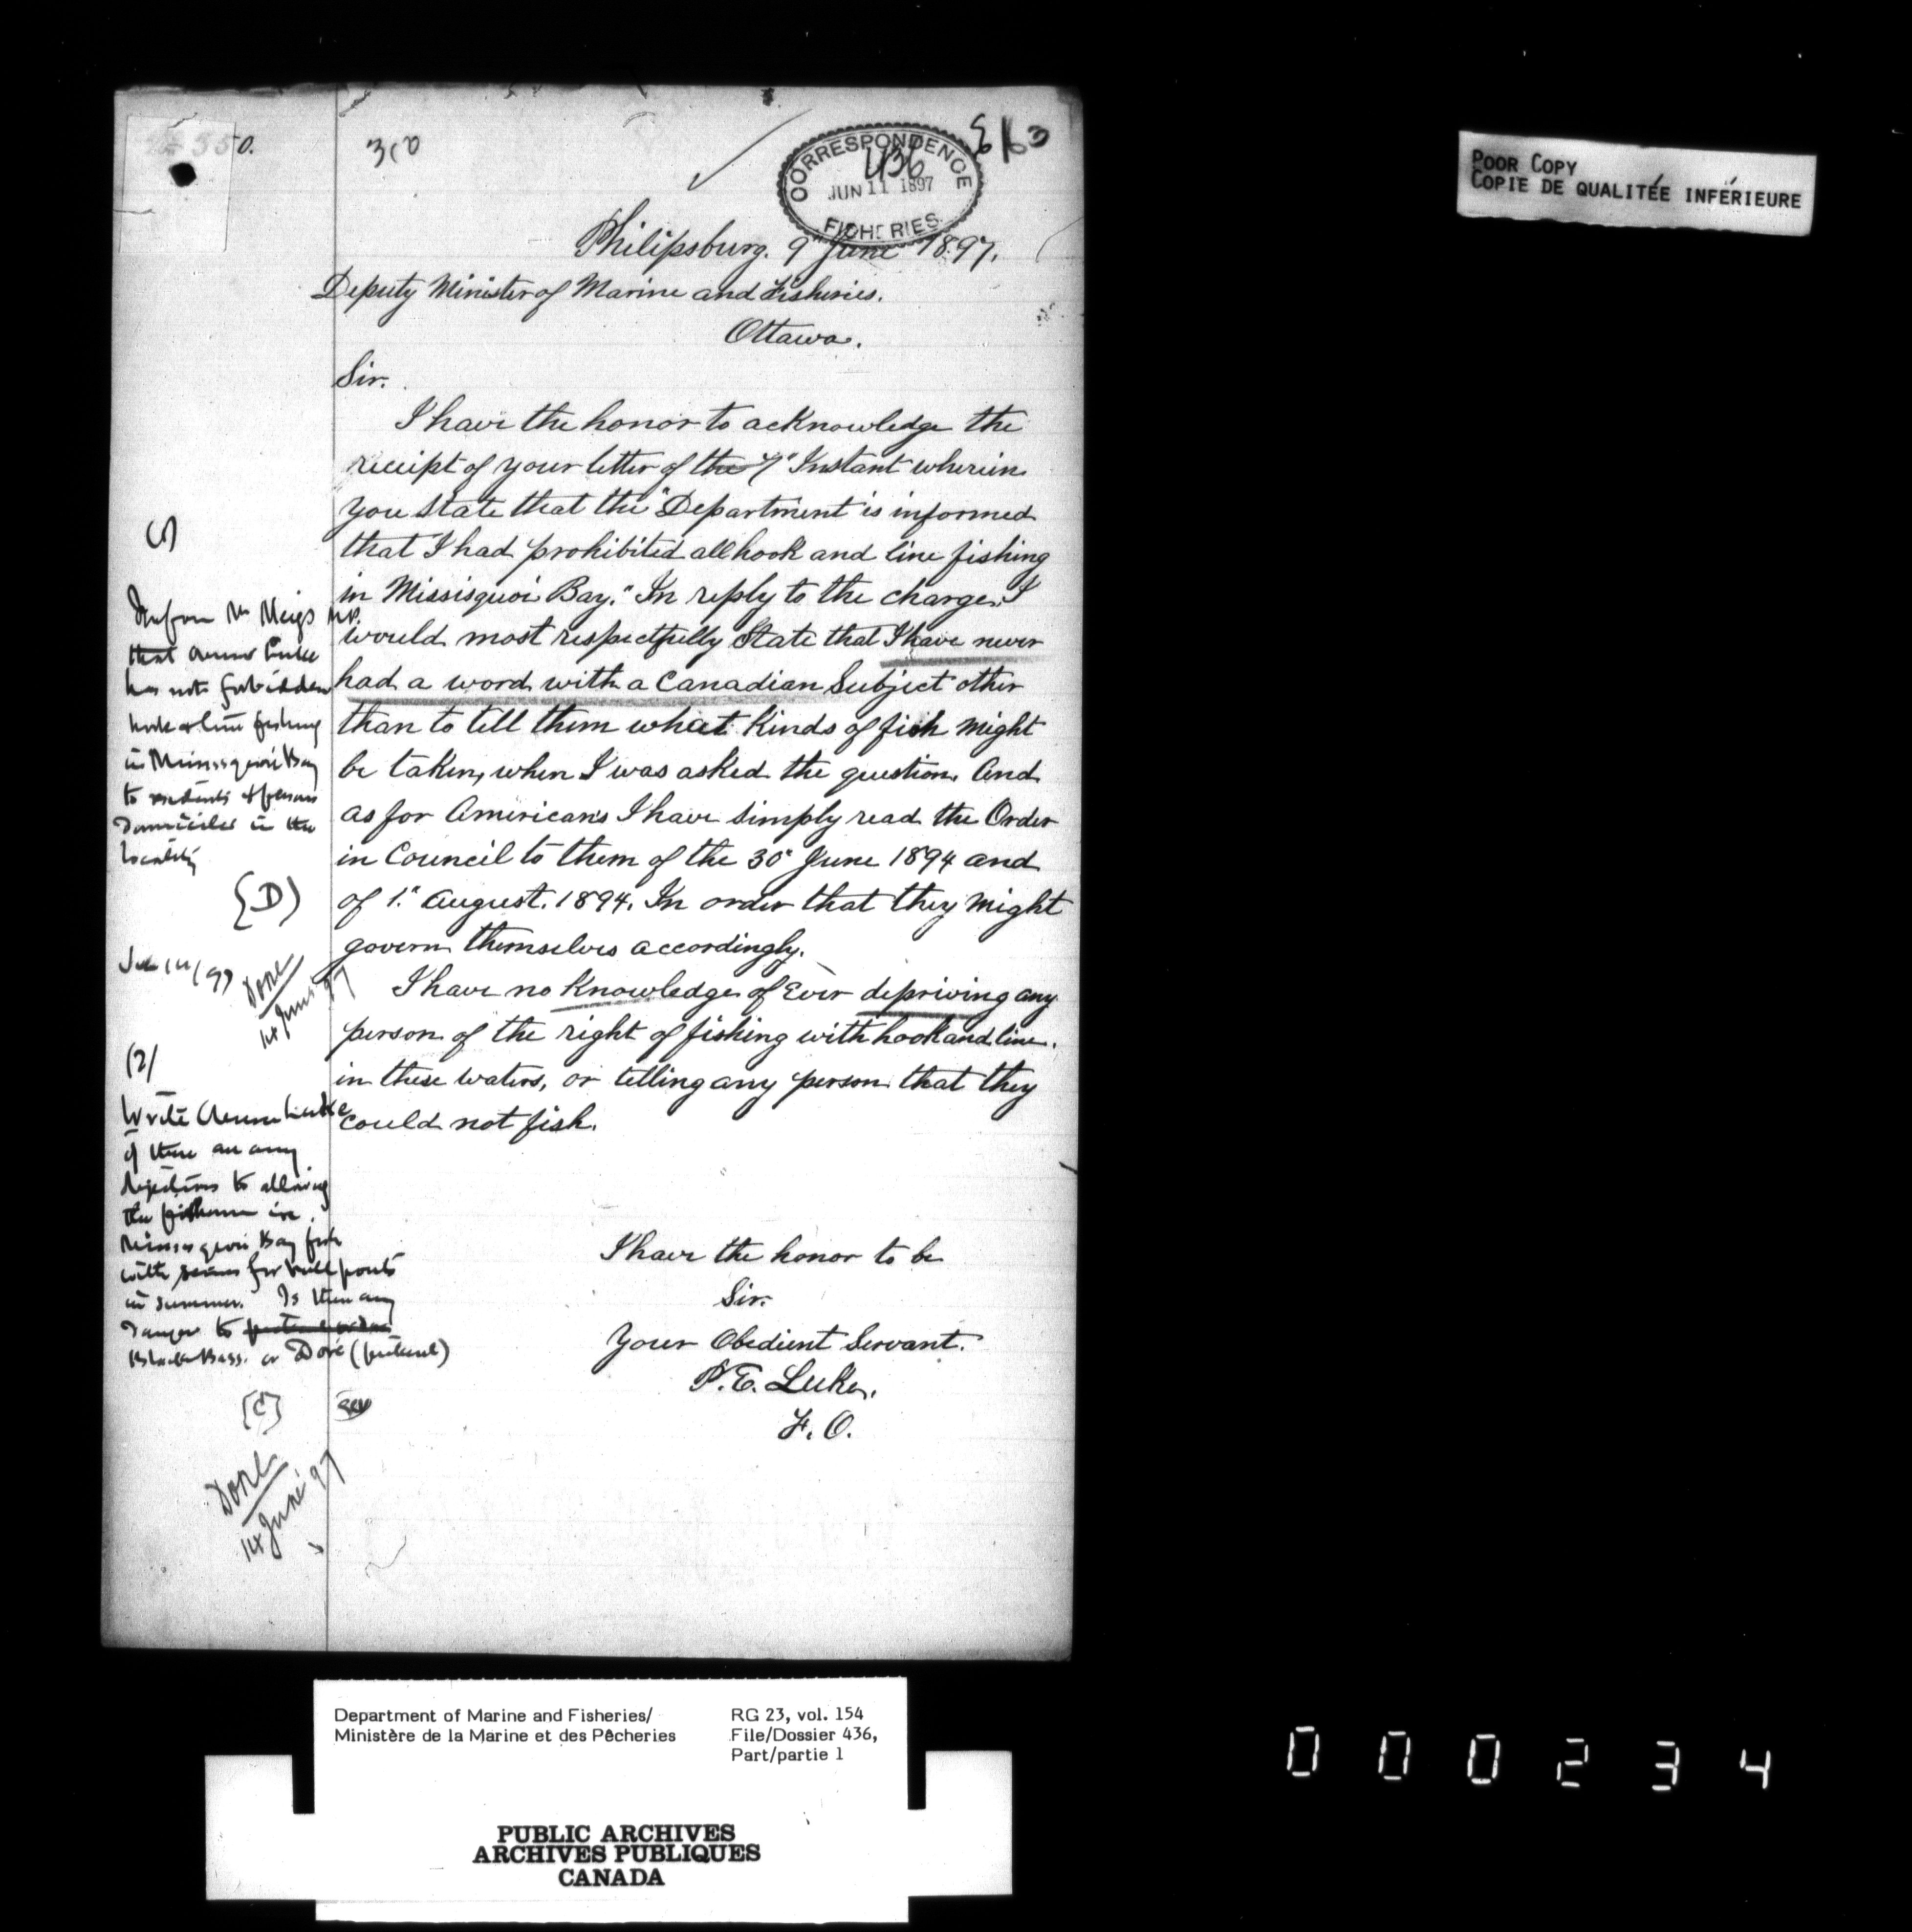 310
CORRESPONDENCE
436
JUN 11 1897
FISHERIES
Philipsburg. 9" June 1897.
Deputy Minister of Marine and Fisheries.
Ottawa.
Sir.
I have the honor to acknowledge the
receipt of your letter of the 7" Instant wherein
you State that the "Department is informed
that I had prohibited all hook and line fishing
in Missisquoi Bay." In reply to the charge, I
would most respectfully State that I have never
had a word with a Canadian Subject other
than to tell them what kinds of fish might
be taken, when I was asked the question. And
as for Americans I have simply read the Order
in Council to them of the 30" June 1894 and
of 1." August. 1894. In order that they might
govern themselves accordingly.
I have no knowledge of Ever depriving any
person of the right of fishing with hook and line.
in these waters, or telling any person that they
could not fish.
I have the honor to be
Sir.
Your Obedient Servant.
P. E. Luke.
F. O.
Inform Mr Meigs M.P.
that Luke
has not forbidden
hook & line fishing
in Missisquoi Bay
to residents & persons
domiciled in the
locality
(D)
Done
14 June 97
(2)
Write Luke
if there are any
objections to allowing
the in
Missisquoi Bay fish
with seines for bull pouts
in summer. Is there any
danger to
Black Bass. or Doré (pickerel)
[C]
Done
14 June 97
POOR COPY
COPIE DE QUALITÉE INFÉRIEURE
Department of Marine and Fisheries/
Ministère de la Marine et des Pêcheries
RG 23, vol. 154
File/Dossier 436,
Part/partie 1
PUBLIC ARCHIVES
ARCHIVES PUBLIQUES
CANADA
000234